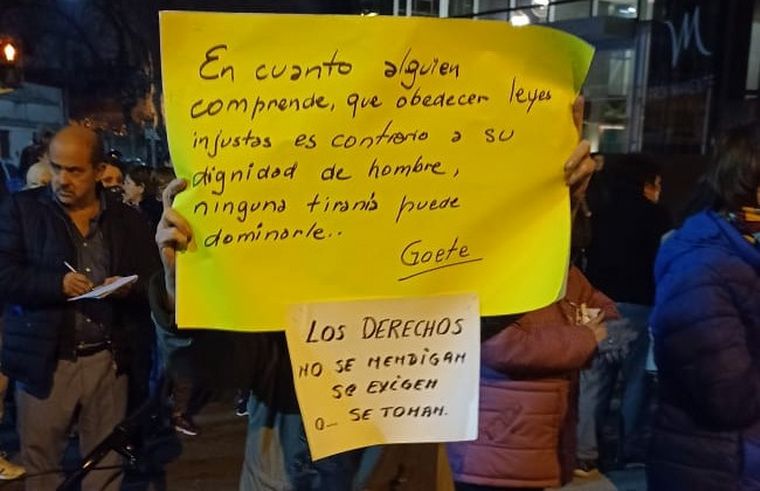 En cuanto alguien
comprende, que obedecer leyes
injustas es contrario a su
dignidad de hombre,
ninguna tiranía puede
dominarle..
Goete
LOS DERECHOS
NO SE MENDIGAN
SE EXIGEN
O... SE TOMAN.
M